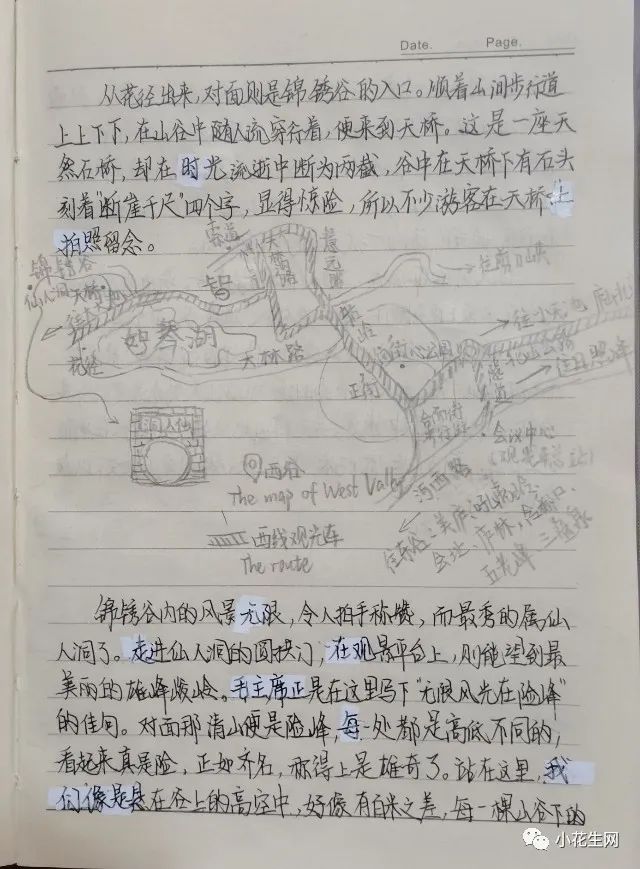 Date. Page.
从花径出来，对面则是锦锈谷的入口。顺着山间步行道
上上下下，在山谷中随人流穿行着，便来到天桥。这是一座天
然石桥，却在时光流逝中断为两截，谷中在天桥下有石头
刻着“断崖千尺”四个字，显得惊险，所以不少游客在天桥上
拍照留念。
锦锈谷
仙人洞 天桥
花径
如琴湖
大林路
正街
索道
往剪刀峡
街心公园
往小天池
往日照峰
会议中心
河西路
仙人洞
西谷
The map of West Valley
西线观光车
The route
往东谷：美庐
会址、庐林、含鄱口、
五老峰、三叠泉
锦锈谷内的风景无限，令人拍手称赞，而最秀的属仙
人洞了。走进仙人洞的圆拱门，在观景平台上，则能望到最
美丽的雄峰峻岭。毛主席正是在这里写下“无限风光在险峰”
的佳句。对面那清山便是险峰，每一处都是高低不同的，
看起来真是险，正如齐名，称得上是雄奇了。站在这里，我
们像是悬在谷上的高空中，好像有百米之差，每一棵山谷下的
小花生网